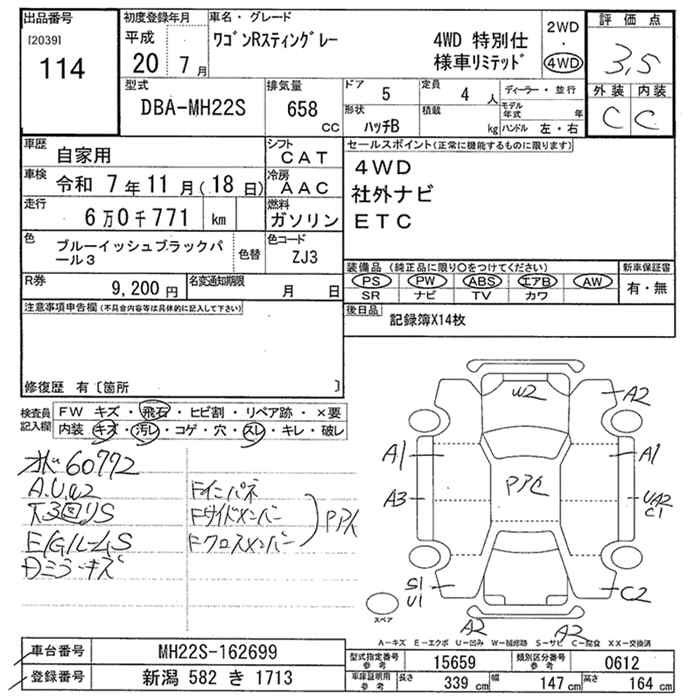 出品番号
[2039]
114
初度登録年月
平成
20 7月
車名・グレード
ワゴンRスティングレー 4WD 特別仕
様車リミテッド
2WD
・
4WD
評価点
3,5
外装 内装
C C
型式
DBA-MH22S
排気量
658
CC
ドア
5
定員
4 人
形状
ハッチB
積載
kg
ディーラー・並行
モデル
年式 年
ハンドル 左・右
車歴
自家用
シフト
CAT
車検
令和 7年11月(18日)
冷房
AAC
走行
6万0千771 km
燃料
ガソリン
色
ブルーイッシュブラックパ
ール3
色替
色コード
ZJ3
R券
9,200円
名変通知期限
月 日
セールスポイント(正常に機能するものに限ります)
4WD
社外ナビ
ETC
装備品 (純正品に限り○をつけてください)
PS PW ABS エアB AW
SR ナビ TV カワ
新車保証書
有・無
後日品
記録簿X14枚
注意事項申告欄(不具合内容等は具体的に記入して下さい)
修復歴 有〔箇所 〕
検査員
記入欄
FW キズ・飛石・ヒビ割・リペア跡・×要
内装 キズ・汚レ・コゲ・穴・スレ・キレ・破レ
60772
A.U.W2
下3回リS
E/G/ルームS
Dミラーキズ
Fインパネ
Fサイドメンバー
Fクロスメンバー
W2
A2
A1
A1
A3
UA2
C1
S1
U1
C2
A2
A2
スペア
A-キズ E-エクボ U-凹み W-補修跡 S-サビ C-腐食 XX-交換済
車台番号
MH22S-162699
登録番号
新潟 582 き 1713
型式指定番号
参考
15659
類別区分番号
参考
0612
車庫証明用
参考
長さ
339 cm
幅
147 cm
高さ
164 cm